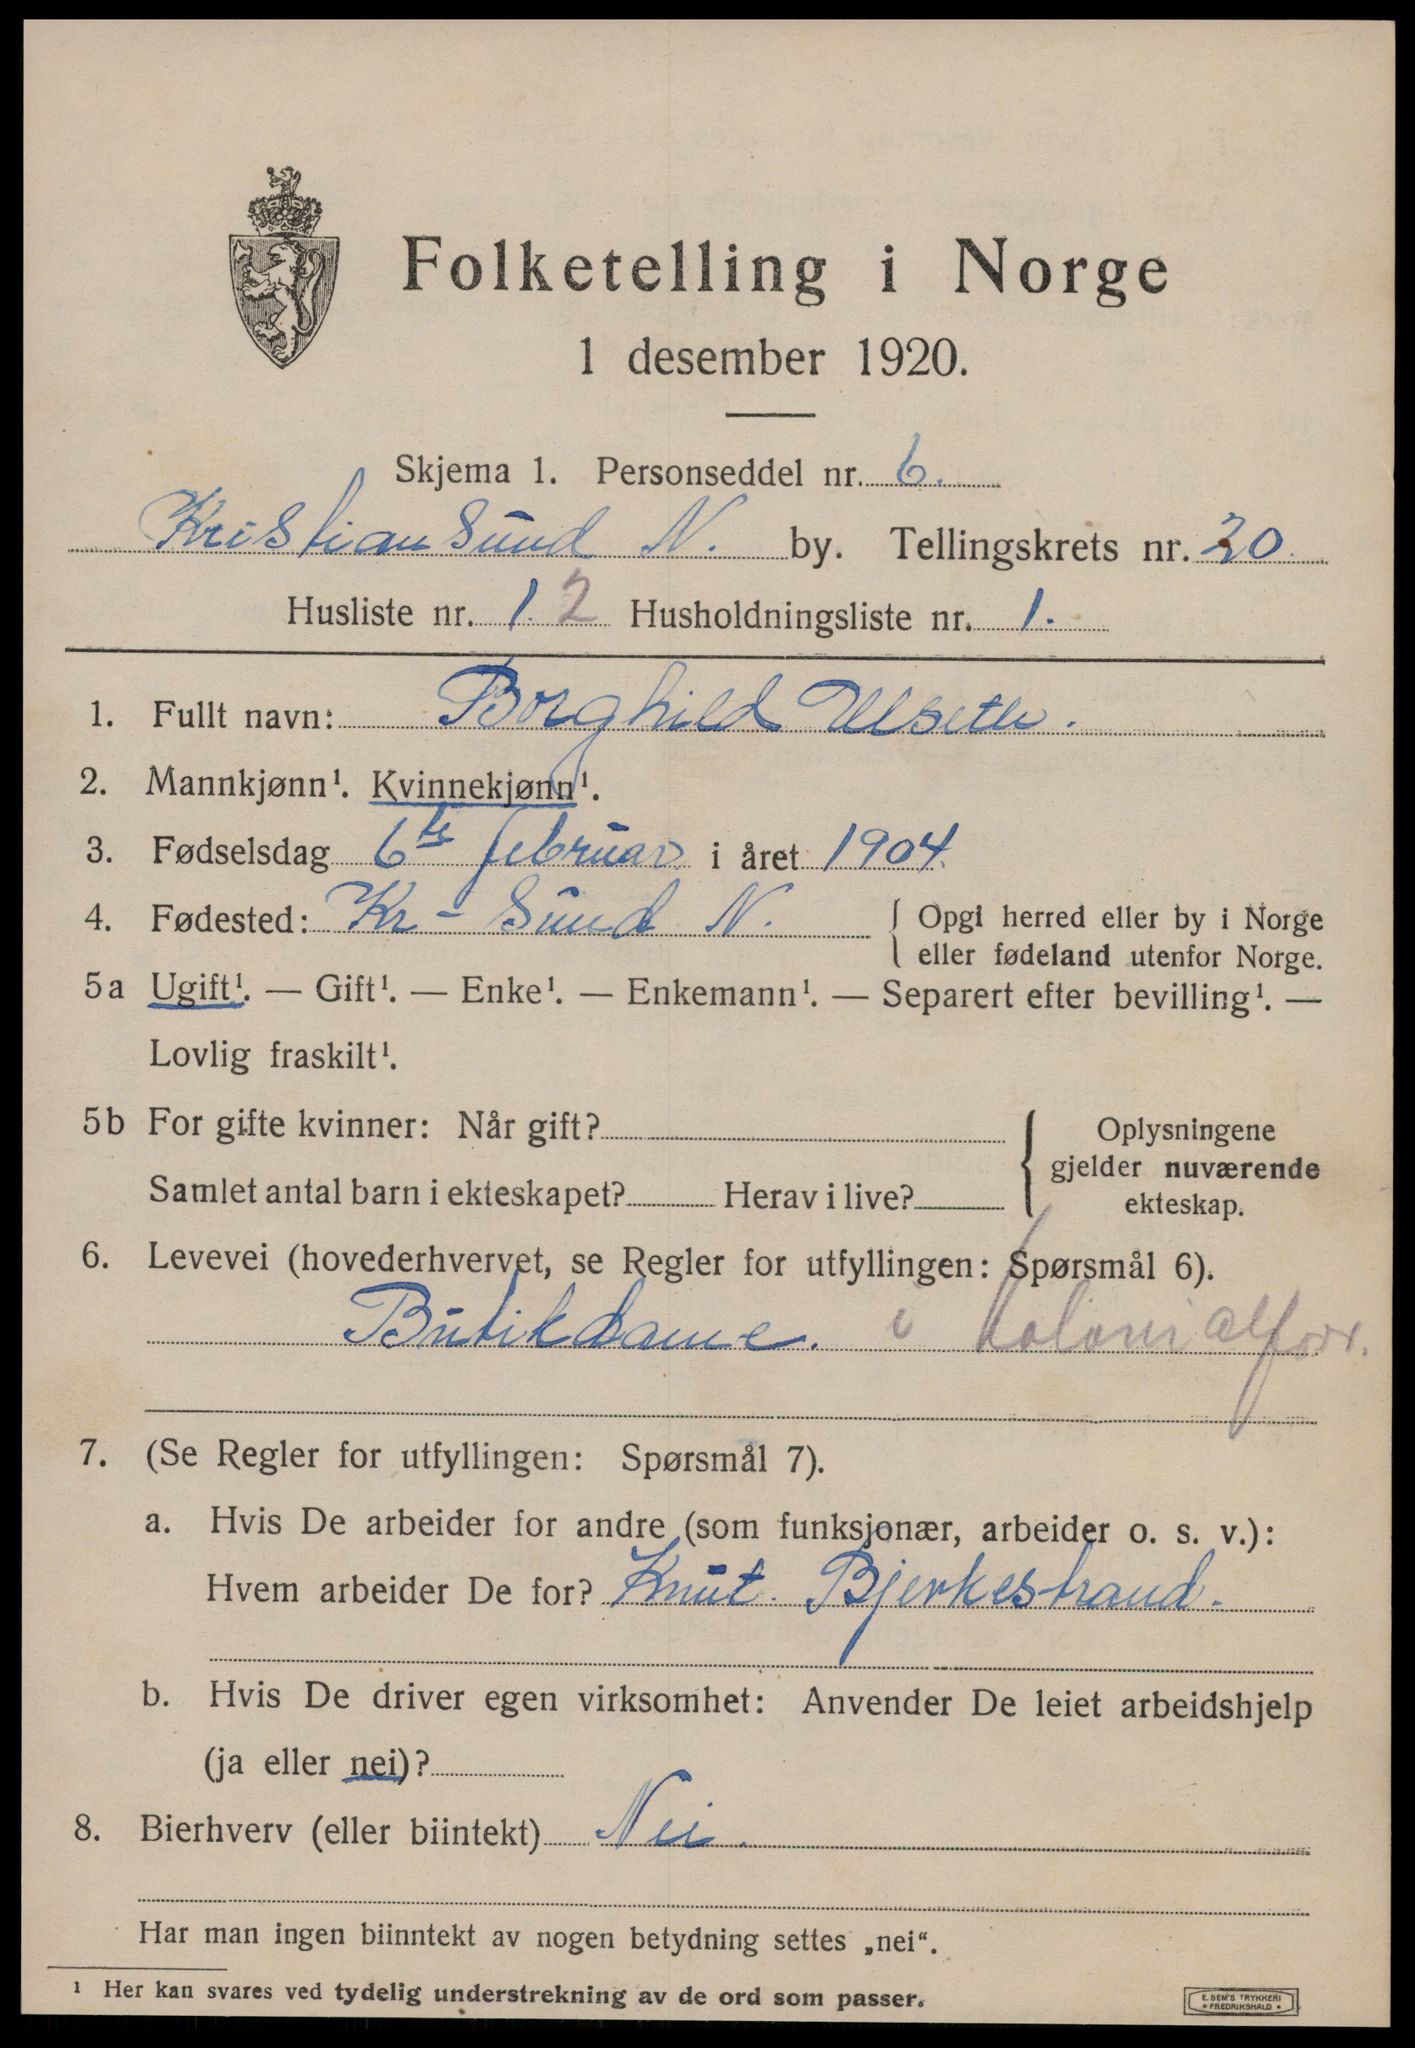 Folketelling i Norge
1 desember 1920.
Skjema 1. Personseddel nr. 6.
Kristiansund N. by. Tellingskrets nr. 20
Husliste nr. 1. 2 Husholdningsliste nr. 1.
1. Fullt navn: Borghild Ulseth.
2. Mannkjønn¹. Kvinnekjønn¹.
3. Fødselsdag 6te februar i året 1904.
4. Fødested: Kr-sund N. { Opgi herred eller by i Norge
eller fødeland utenfor Norge.
5a Ugift¹. — Gift¹. — Enke¹. — Enkemann¹. — Separert efter bevilling¹. —
Lovlig fraskilt¹.
5b For gifte kvinner: Når gift? { Oplysningene
gjelder nuværende
Samlet antal barn i ekteskapet? Herav i live? ekteskap.
6. Levevei (hovederhvervet, se Regler for utfyllingen: Spørsmål 6).
Butikdame. i kolonialforr.
7. (Se Regler for utfyllingen: Spørsmål 7).
a. Hvis De arbeider for andre (som funksjonær, arbeider o. s. v.):
Hvem arbeider De for? Knut. Bjerkestrand.
b. Hvis De driver egen virksomhet: Anvender De leiet arbeidshjelp
(ja eller nei)?
8. Bierhverv (eller biintekt) Nei.
Har man ingen biinntekt av nogen betydning settes „nei“.
¹ Her kan svares ved tydelig understrekning av de ord som passer.
E. SEM'S TRYKKERI
* FREDRIKSHALD *